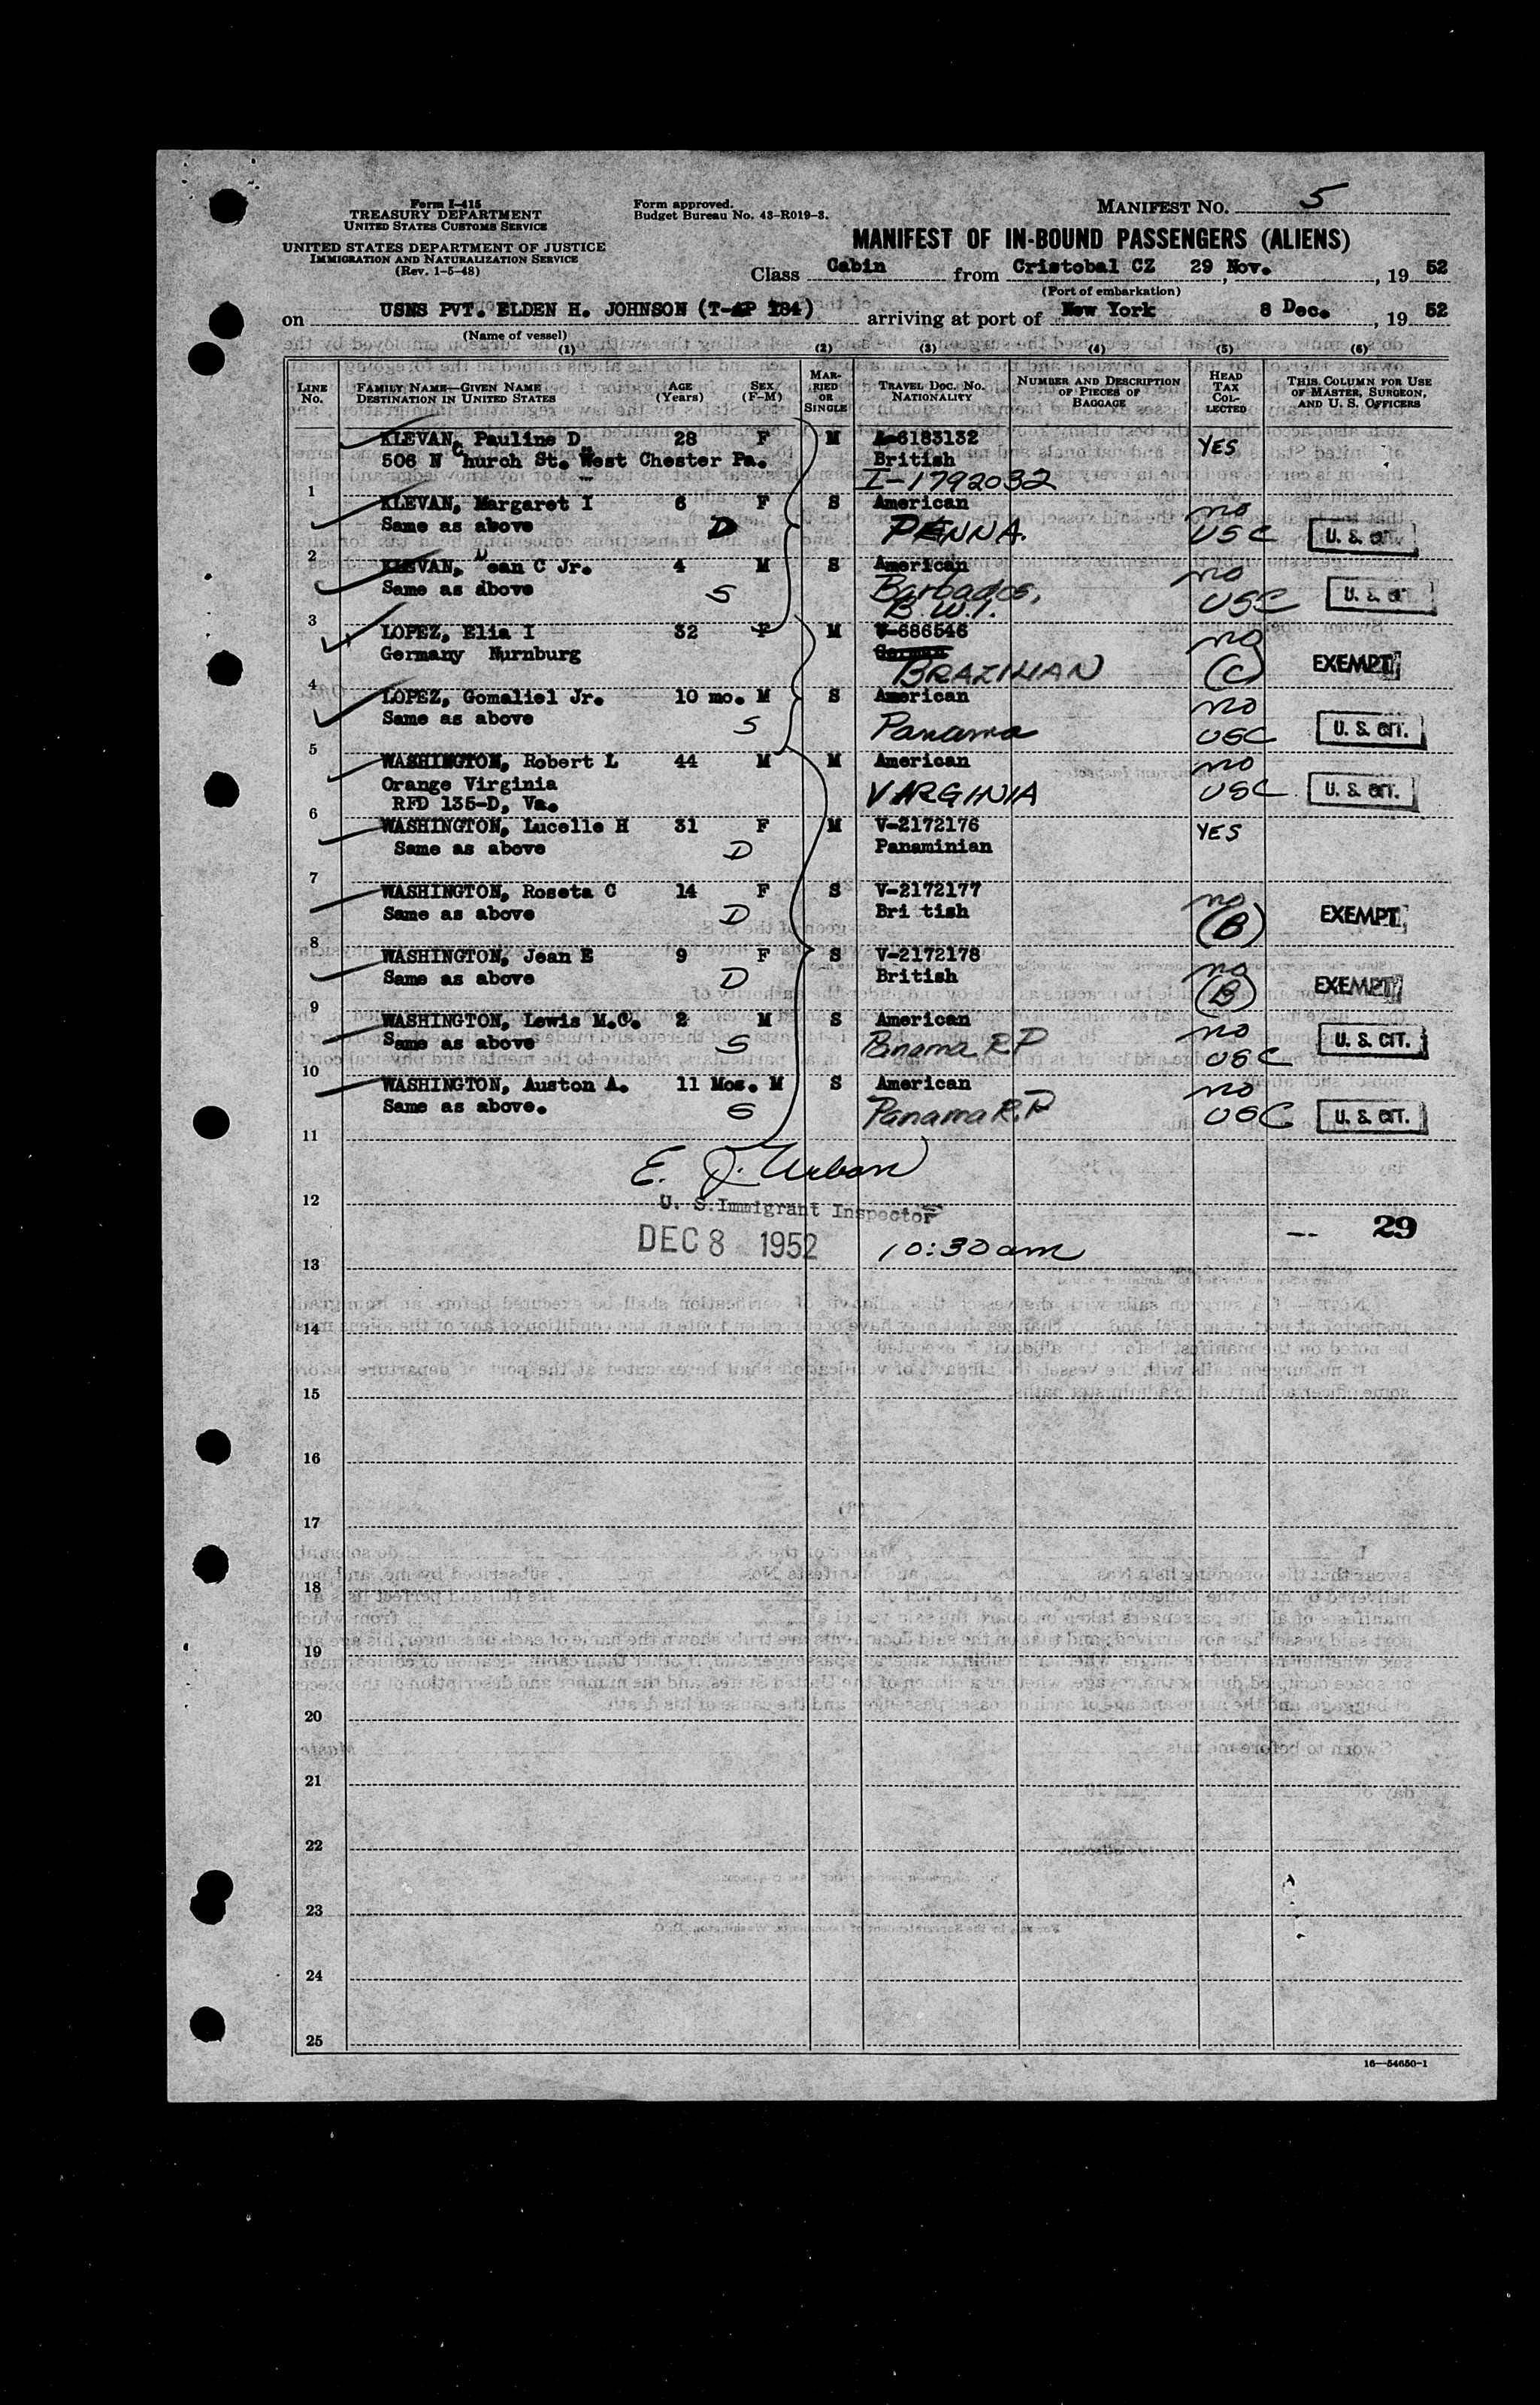 Form I-415
TREASURY DEPARTMENT
UNITED STATES CUSTOMS SERVICE
UNITED STATES DEPARTMENT OF JUSTICE
IMMIGRATION AND NATURALIZATION SERVICE
(Rev. 1-5-48)
Form approved.
Budget Bureau No. 43-R019-3.
MANIFEST NO. 5
MANIFEST OF IN-BOUND PASSENGERS (ALIENS)
Class Cabin from Cristobal CZ 29 Nov., 19 52
(Port of embarkation)
on USNS PVT. ELDEN H. JOHNSON (T-AP 184) arriving at port of New York 8 Dec., 19 52
(Name of vessel)
(1) (2) (3) (4) (5) (6)
LINE No. FAMILY NAME—GIVEN NAME DESTINATION IN UNITED STATES AGE (Years) SEX (F-M) MARRIED OR SINGLE TRAVEL DOC. NO. NATIONALITY NUMBER AND DESCRIPTION OF PIECES OF BAGGAGE HEAD TAX COLLECTED THIS COLUMN FOR USE OF MASTER, SURGEON, AND U. S. OFFICERS
KLEVAN, Pauline D. 28 F M A-6183132 YES
506 N Church St. West Chester Pa. British
1 I-1792032
KLEVAN, Margaret I 6 F S American no
Same as above D PENNA. USC U. S. CIT.
2
KLEVAN, Dean C Jr. 4 M S American no
Same as above S Barbados, USC U. S. CIT.
3 B.W.I.
LOPEZ, Elia I 32 F M V-686546 no
Germany Nurnburg German
4 BRAZILIAN (C) EXEMPT
LOPEZ, Gomaliel Jr. 10 mo. M S American no
Same as above S Panama USC U. S. CIT.
5
WASHINGTON, Robert L 44 M M American no
Orange Virginia VIRGINIA USC U. S. CIT.
6 RFD 135-D, Va.
WASHINGTON, Lucelle H 31 F M V-2172176 YES
Same as above D Panaminian
7
WASHINGTON, Roseta C 14 F S V-2172177 no
Same as above D Bri tish (B) EXEMPT
8
WASHINGTON, Jean E 9 F S V-2172178 no
Same as above D British (B) EXEMPT
9
WASHINGTON, Lewis M.C. 2 M S American no
Same as above S Panama R.P USC U. S. CIT.
10
WASHINGTON, Auston A. 11 Mos. M S American no
Same as above. S Panama R.P USC U. S. CIT.
11
E. J. Urban
12 U. S. Immigrant Inspector
DEC 8 1952 10:30am -- 29
13
14
15
16
17
18
19
20
21
22
23
24
25
16—54650-1